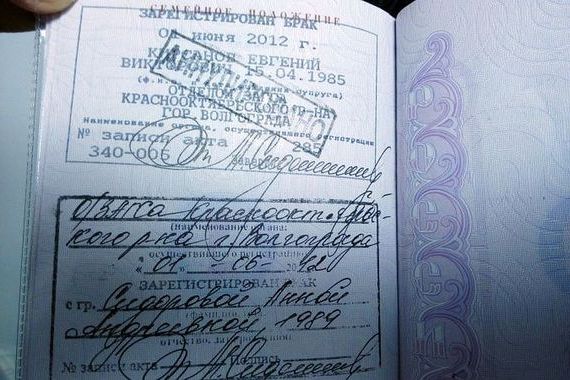 СЕМЕЙНОЕ ПОЛОЖЕНИЕ
ЗАРЕГИСТРИРОВАН БРАК
01 июня 2012 г.
ЕВГЕНИЙ
15.04.1985
супруга)
ОТДЕЛОМ ЗАГСА
КРАСНООКТЯБРЬСКОГО Р-НА
ГОР. ВОЛГОГРАДА
Наименование органа, осуществившего регистрацию
№ записи акта 285
340-006
О/ЗАГСа Краснооктябрьс-
(наименование органа:
кого р-на г. Волгограда
осуществившего регистрацию)
"01" -06- 2012
ЗАРЕГИСТРИРОВАН БРАК
с гр. Сидоровой Анной
Андреевной, 1989
отчество, дата рождения)
№ записи акта Подпись